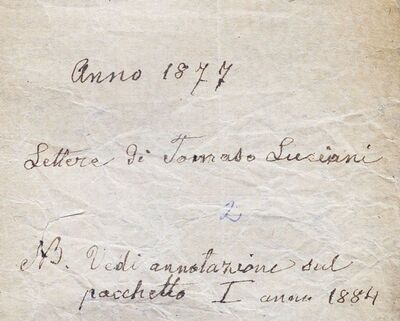 Anno 1877
Lettere di Tomaso Luciani
2
NB. Vedi annotazione sul
pacchetto I anno 1884